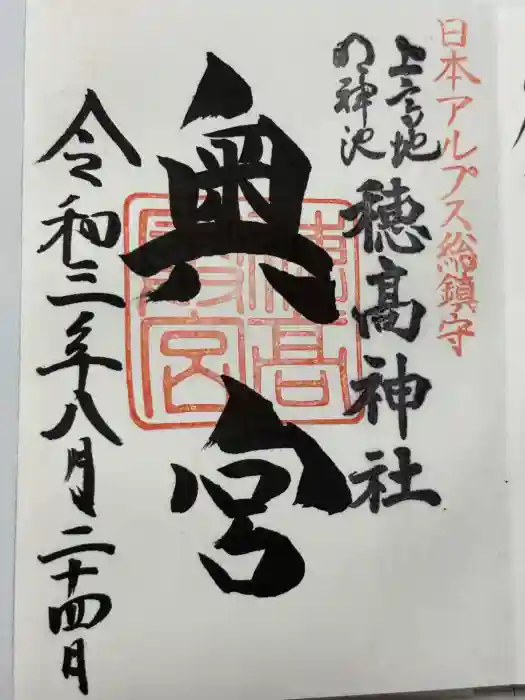 日本アルプス総鎮守
上高地
明神池
穂髙神社
奥宮
穂高奥宮
令和三年八月二十四日